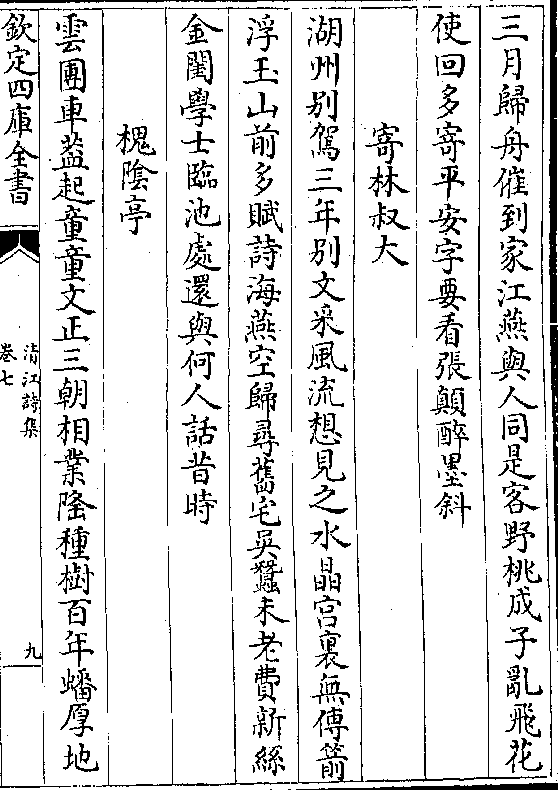 三月歸舟催到家江燕與人同是客野桃成子亂飛花
使回多寄平安字要看張顛醉墨斜
寄林叔大
湖州別駕三年別文采風流想見之水晶宮裏無傳箭
浮玉山前多賦詩海燕空歸尋舊宅吳蠶未老費新絲
金閨學士臨池處還與何人話昔時
槐陰亭
雲團車葢起童童文正三朝相業隆種樹百年蟠厚地
欽定四庫全書
清江詩集
卷七
九